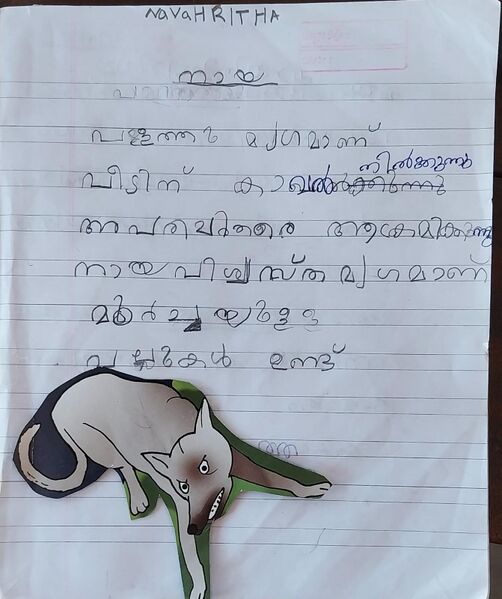 NavaHRITHA
നായ
വളത്തു മൃഗമാണ്
വീടിന് കാവൽ നിൽക്കുന്നു
അപരിചിതരെ ആക്രമിക്കുന്നു
നായ വിശ്വസ്ത മൃഗമാണ്
മൂർച്ചയുള്ള
പല്ലുകൾ ഉണ്ട്